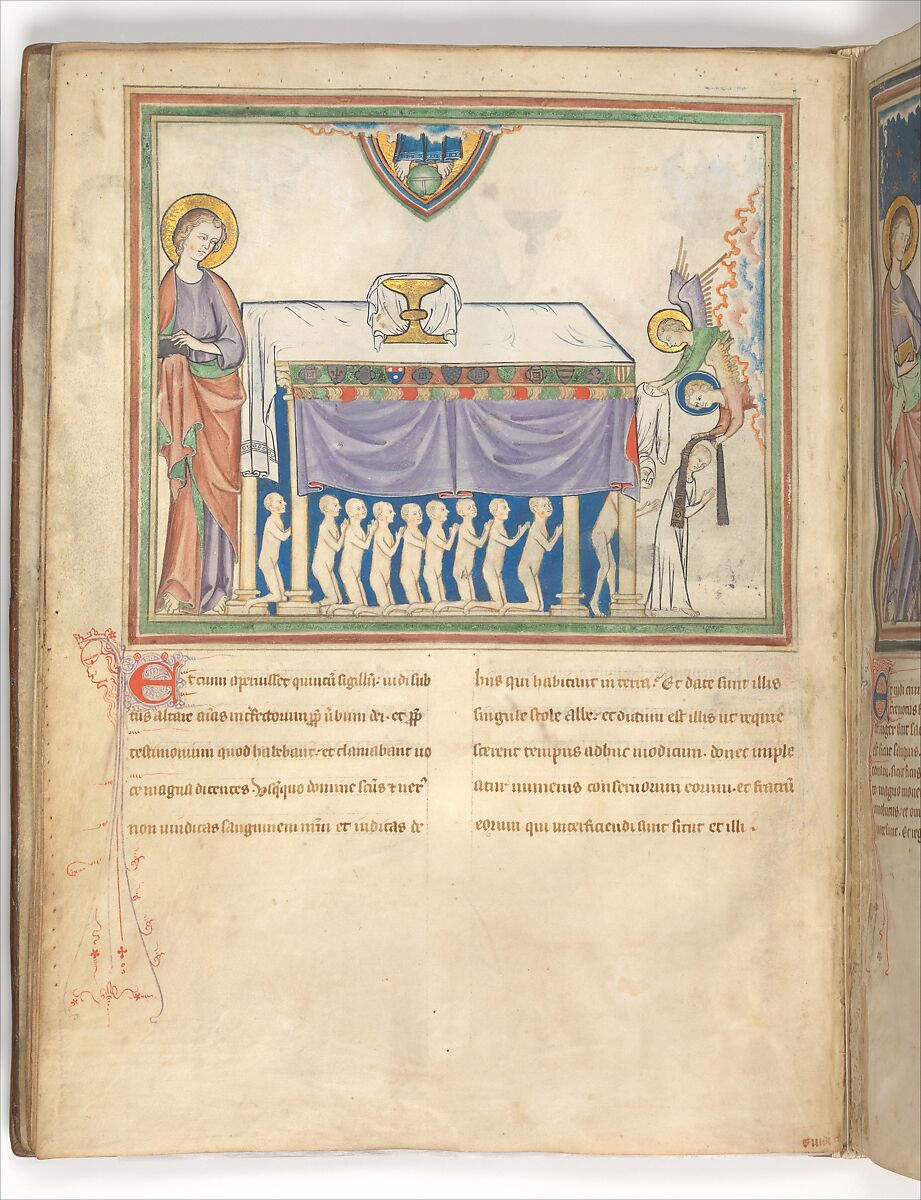 Et cum aperuisset quintū sigillū: uidi sub
tus altare aīas interfectorum ꝓp̄ ūbum dei . et ꝓp̄
testimonium quod habebant: et clamabant uo
ce magna dicentes. Vsq̄quo domine sc̄us ⁊ uerꝰ
non uindicas sanguinem nr̄m et iudicas de
hiis qui habitant in terra: Et date sunt illis
singule stole albe: et dictum est illis ut requie
scerent tempus adhuc modicum . donec imple
atur numerus conseruorum eorum . et fratrū
eorum qui interficiendi sunt sicut et illi .